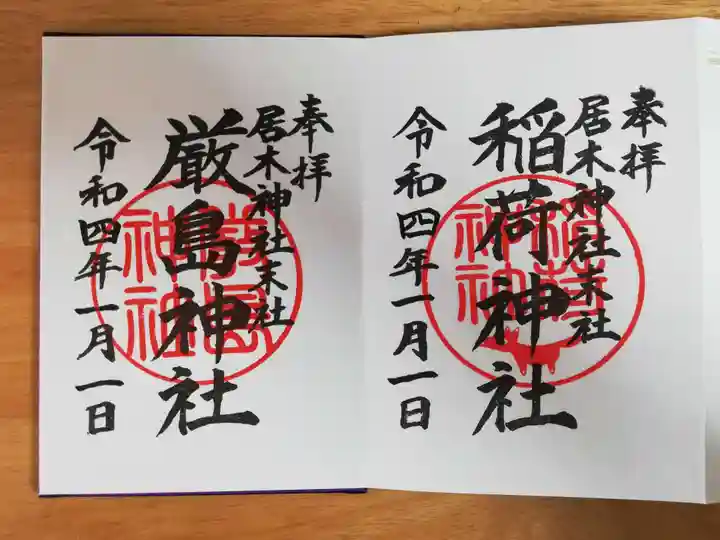 奉拝
居木神社末社
稲荷神社
令和四年一月一日
稲荷神社
奉拝
居木神社末社
厳島神社
令和四年一月一日
嚴島神社